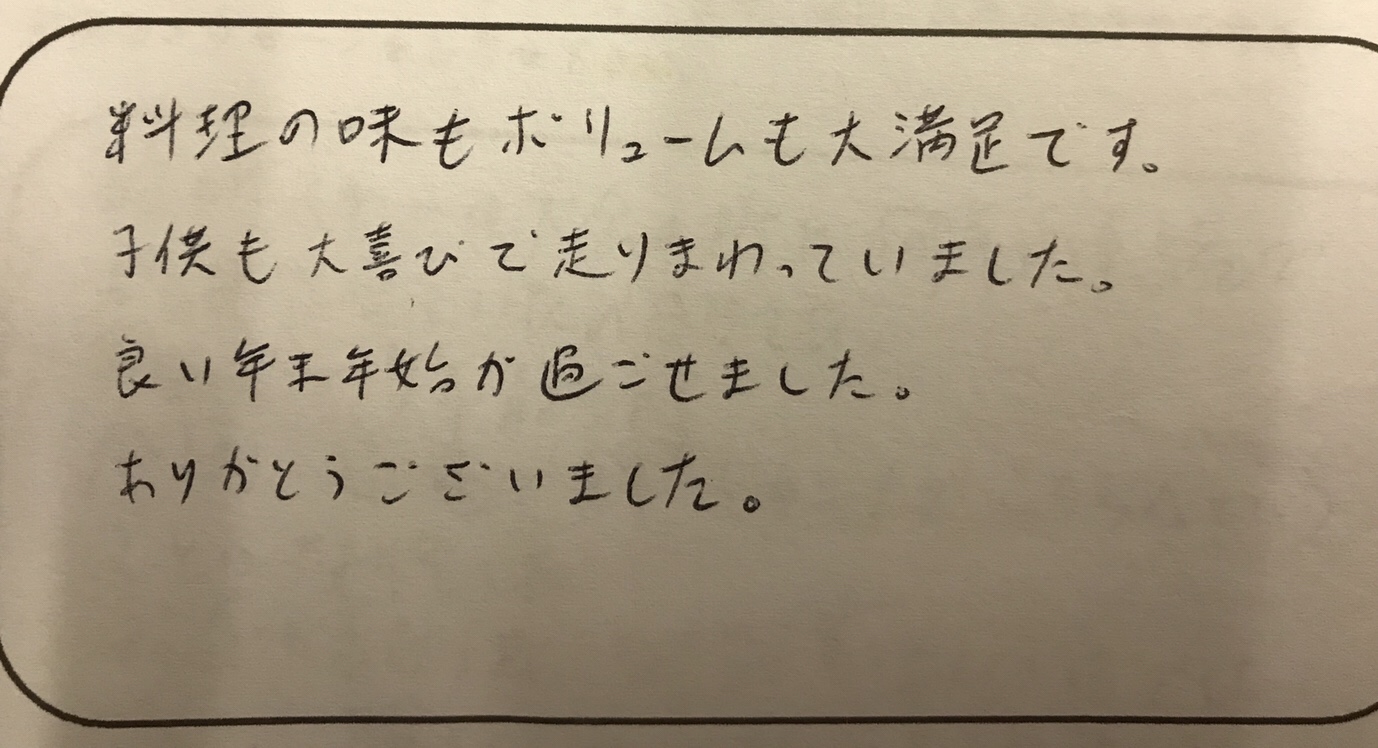 料理の味もボリュームも大満足です。
子供も大喜びで走りまわっていました。
良い年末年始が過ごせました。
ありがとうございました。